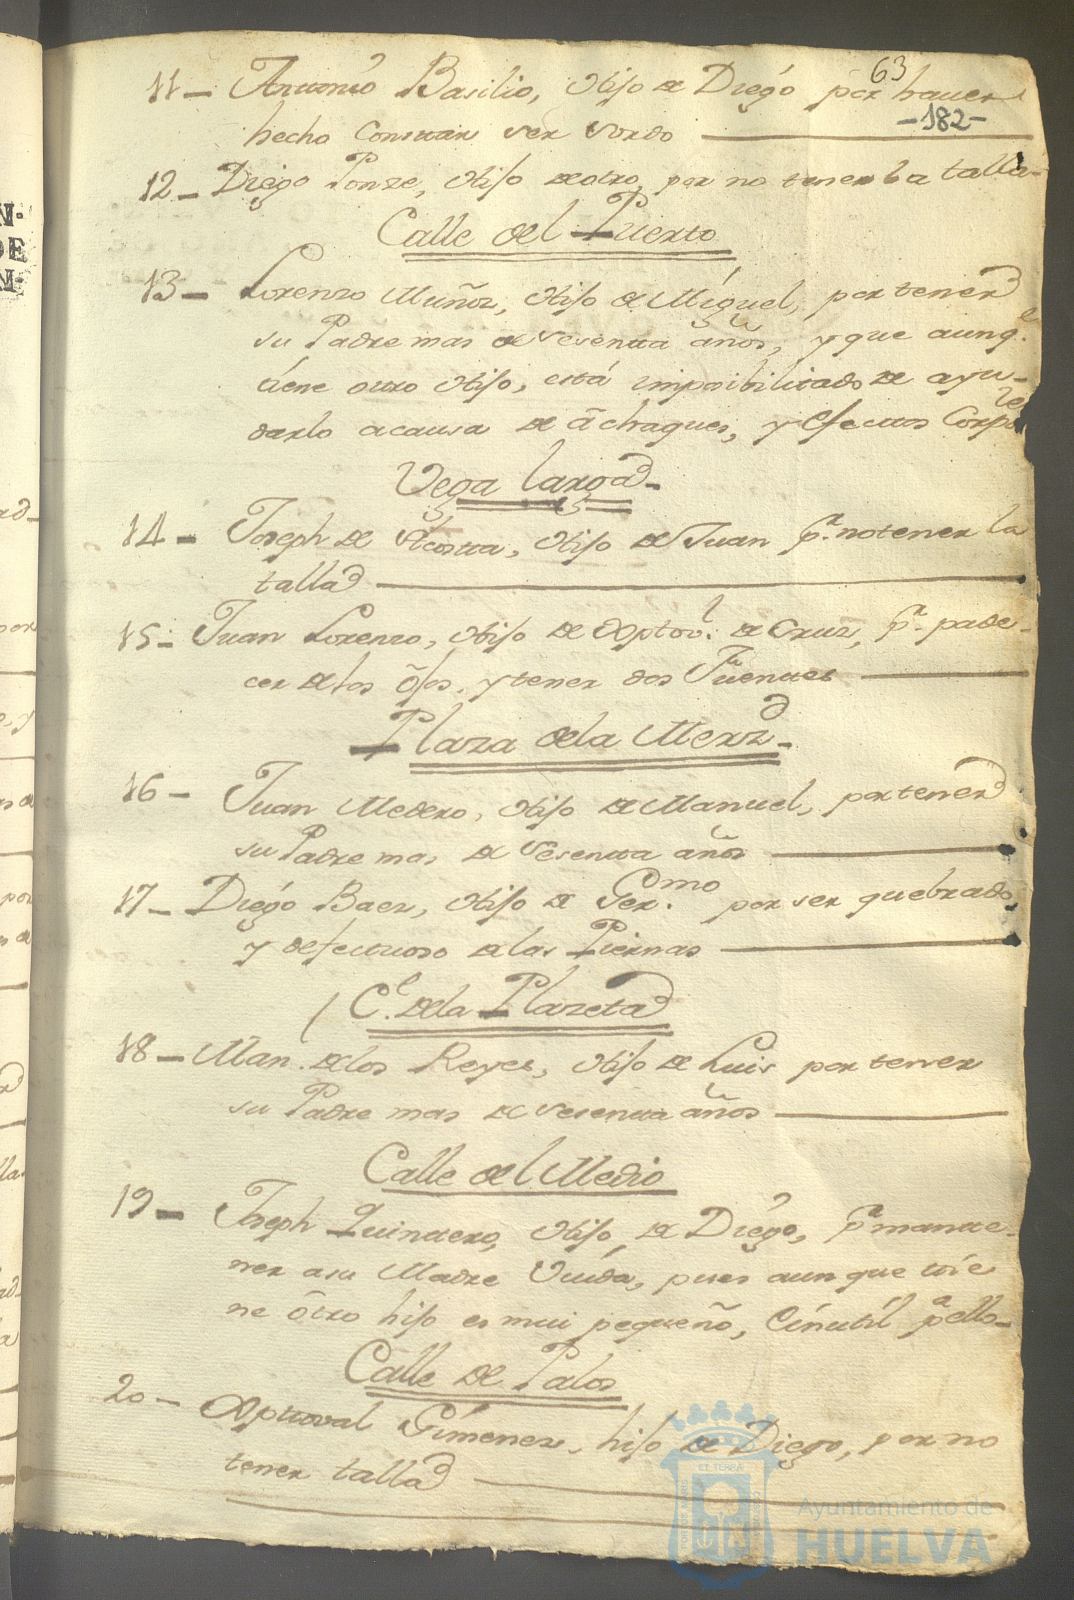 63
11 - Antonio Basilio, Hijo de Diego por haver
-182-
hecho Constar ser sordo
12 - Diego Ponze, Hijo de otro, por no tener la talla
Calle del Puerto
13 - Lorenzo Muñoz, Hijo de Miguel, por tener
su Padre mas de sesenta años, y que aunq.e
tiene otro Hijo, está imposibilitado de ayu-
darlo a causa de achaques, y efectos Corpo
Vega larga
14 - Joseph de Acosta, Hijo de Juan p.r no tener la
talla
15 - Juan Lorenzo, Hijo de Xptov.l de Cruz, p.r pade-
cer de los ojos, y tener dos Fuentes
Plaza de la Merzd
16 - Juan Medero, Hijo de Manuel, por tener
su Padre mas de sesenta años
17 - Diego Baez, Hijo de Ger.mo por ser quebrado
y defectuoso de las Piernas
C.e de la Plazeta
18 - Man. de los Reyes, Hijo de Luis por tener
su Padre mas de sesenta años
Calle del Medio
19 - Joseph Quintero, Hijo de Diego, p.r mante-
ner a su Madre Viuda, pues aunque tie
ne otro hijo es mui pequeño, é inutil p.a ello
Calle de Palos
20 - Xptoval Gimenez, hijo de Diego, por no
tener talla
ET TERRA
Ayuntamiento de
HUELVA